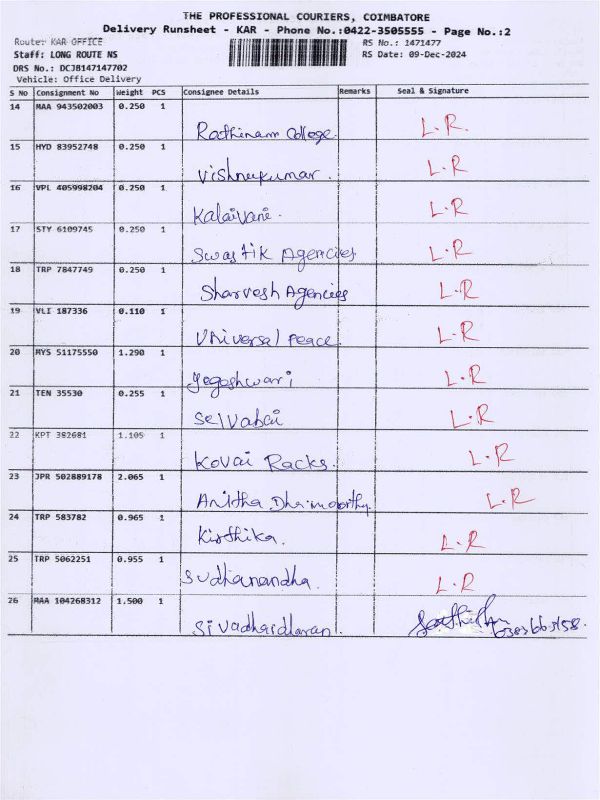 THE PROFESSIONAL COURIERS, COIMBATORE
Delivery Runsheet - KAR - Phone No.:0422-3505555 - Page No.:2
Route: KAR OFFICE RS No.: 1471477
Staff: LONG ROUTE NS RS Date: 09-Dec-2024
DRS No.: DCJ8147147702
Vehicle: Office Delivery
S No Consignment No Weight PCS Consignee Details Remarks Seal & Signature
14 MAA 943502003 0.250 1
Rathinam College. L.R.
15 HYD 83952748 0.250 1
Vishnukumar. L.R
16 VPL 405998204 0.250 1
Kalaivani. L.R
17 STY 6109745 0.250 1
Swastik Agencies L.R
18 TRP 7847749 0.250 1
Sharvesh Agencies L.R
19 VLI 187336 0.110 1
Universal Peace. L.R
20 MYS 51175550 1.290 1
Yogeshwari L.R
21 TEN 35530 0.255 1
Selvabai L.R
22 KPT 382681 1.105 1
Kovai Racks. L.R
23 JPR 502889178 2.065 1
Anitha L.R
24 TRP 583782 0.965 1
Kirthika. L.R
25 TRP 5062251 0.955 1
Sudhanandha. L.R
26 MAA 104268312 1.500 1